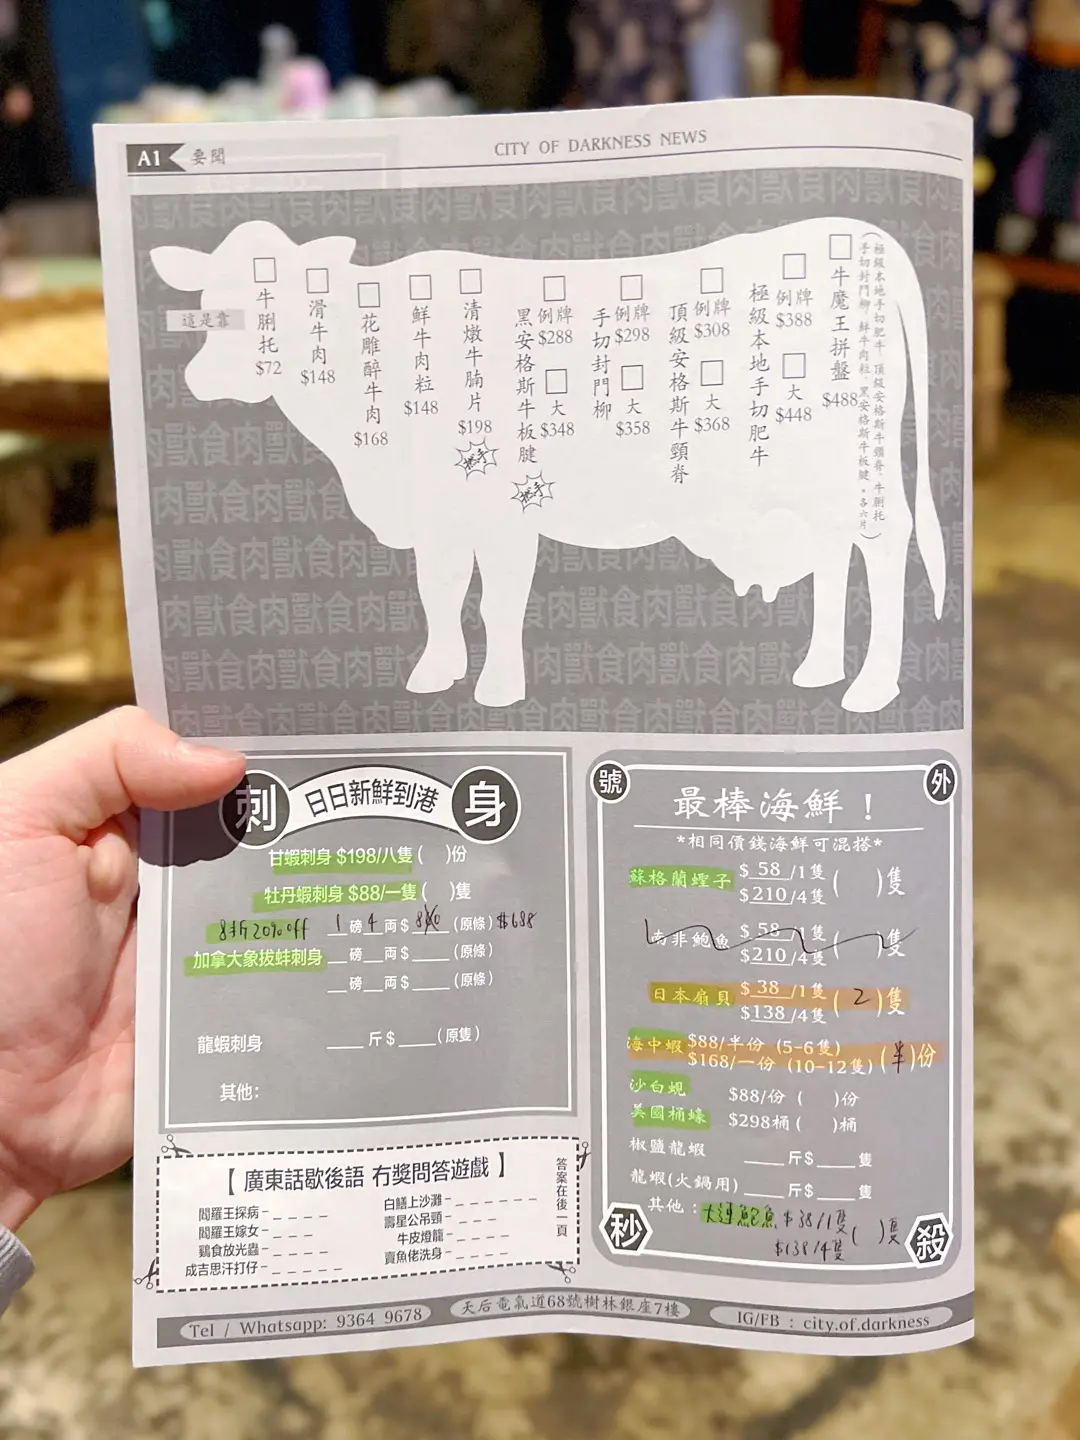 A1 要聞
CITY OF DARKNESS NEWS
這是靠
牛脷托
$72
滑牛肉
$148
花雕醉牛肉
$168
鮮牛肉粒
$148
清燉牛腩片
$198
黑安格斯牛板腱
例牌
$288
大
$348
手切封門柳
例牌
$298
大
$358
頂級安格斯牛頸脊
例牌
$308
大
$368
極級本地手切肥牛
例牌
$388
大
$448
牛魔王拼盤
$488
(極級本地手切肥牛、頂級安格斯牛頸脊、牛脷托
手切封門柳、鮮牛肉粒、黑安格斯牛板腱。各六片)
刺 日日新鮮到港 身
甘蝦刺身 $198/八隻( )份
牡丹蝦刺身 $88/一隻( )隻
8折20% off 1磅4両$860(原條)$688
加拿大象拔蚌刺身 __磅__両$____(原條)
__磅__両$____(原條)
龍蝦刺身 ____斤$____(原隻)
其他:
號 外
最棒海鮮!
*相同價錢海鮮可混搭*
蘇格蘭蟶子 $ 58 /1隻 ( )隻
$210/4隻
南非鮑魚 $ 58 /1隻 ( )隻
$210/4隻
日本扇貝 $ 38 /1隻 ( 2 )隻
$138/4隻
海中蝦 $88/半份 (5-6隻)
$168/一份 (10-12隻) (半)份
沙白蜆 $88/份 ( )份
美國桶蠔 $298桶 ( )桶
椒鹽龍蝦 ____斤$____隻
龍蝦(火鍋用) ____斤$____隻
其他:大連鮑魚 $38/1隻 ( )隻
$138/4隻
秒 殺
【 廣東話歇後語 冇獎問答遊戲 】
答案在後一頁
閻羅王探病– _ _ _ _
閻羅王嫁女– _ _ _ _
鷄食放光蟲– _ _ _ _
成吉思汗打仔– _ _ _ _ _
白鱔上沙灘– _ _ _ _ _
壽星公吊頸– _ _ _
牛皮燈籠– _ _ _ _
賣魚佬洗身– _ _ _ _
Tel / Whatsapp: 9364 9678
天后電氣道68號樹林銀座7樓
IG/FB : city.of.darkness